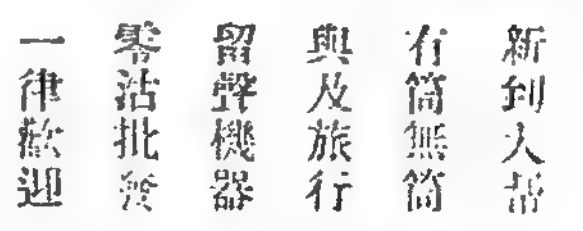 新到大帮
有筒無筒
與及旅行
留聲機器
零沽批發
一律歡迎